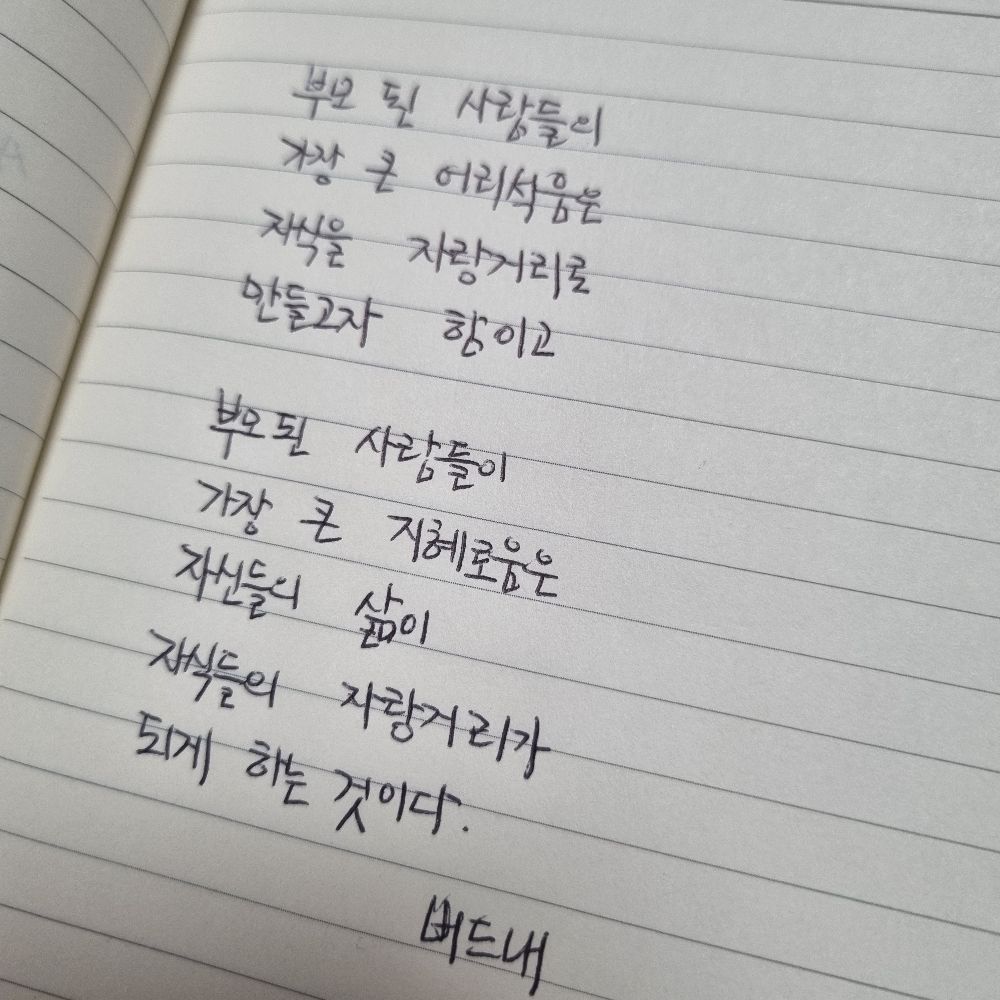 부모 된 사람들의
가장 큰 어리석음은
자식을 자랑거리로
만들고자 함이고
부모 된 사람들이
가장 큰 지혜로움은
자신들의 삶이
자식들의 자랑거리가
되게 하는 것이다.
버드내